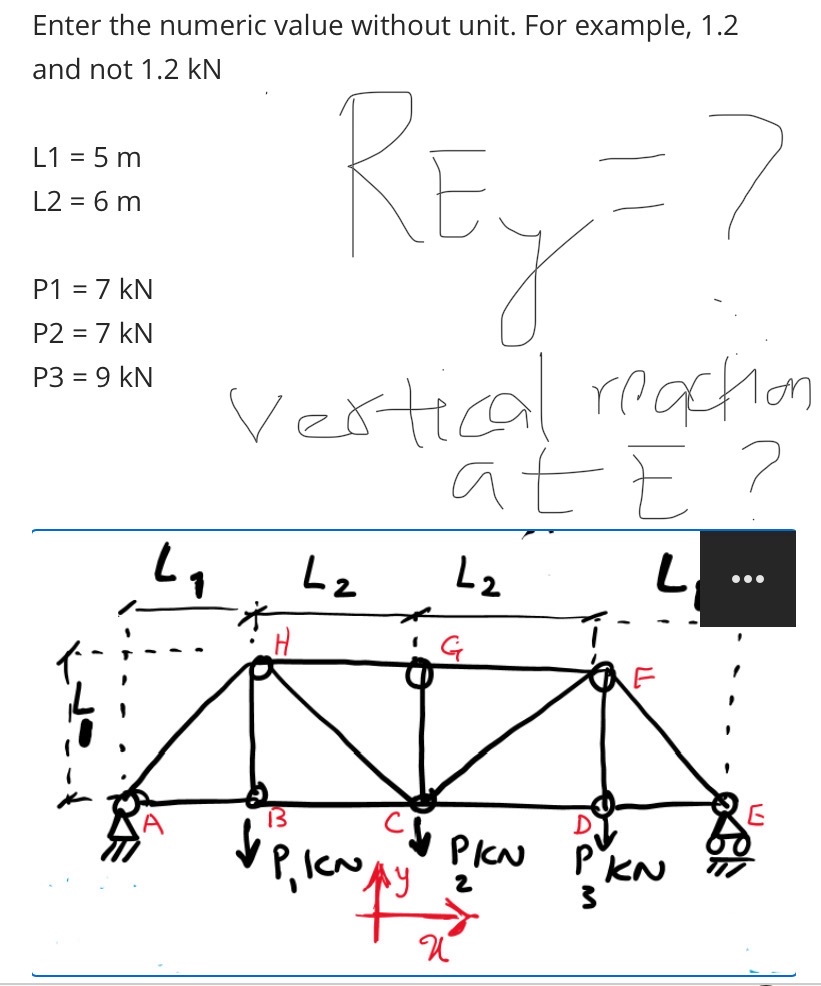 Enter the numeric value without unit. For example, 1.2
and not 1.2 kN
L1 = 5 m
L2 = 6 m
REy = ?
P1 = 7 kN
P2 = 7 kN
P3 = 9 kN
vertical reaction
at E ?
L1 L2 L2 L
H G F
L1
A B C D E
P1 KN P2 KN P3 KN
y
x